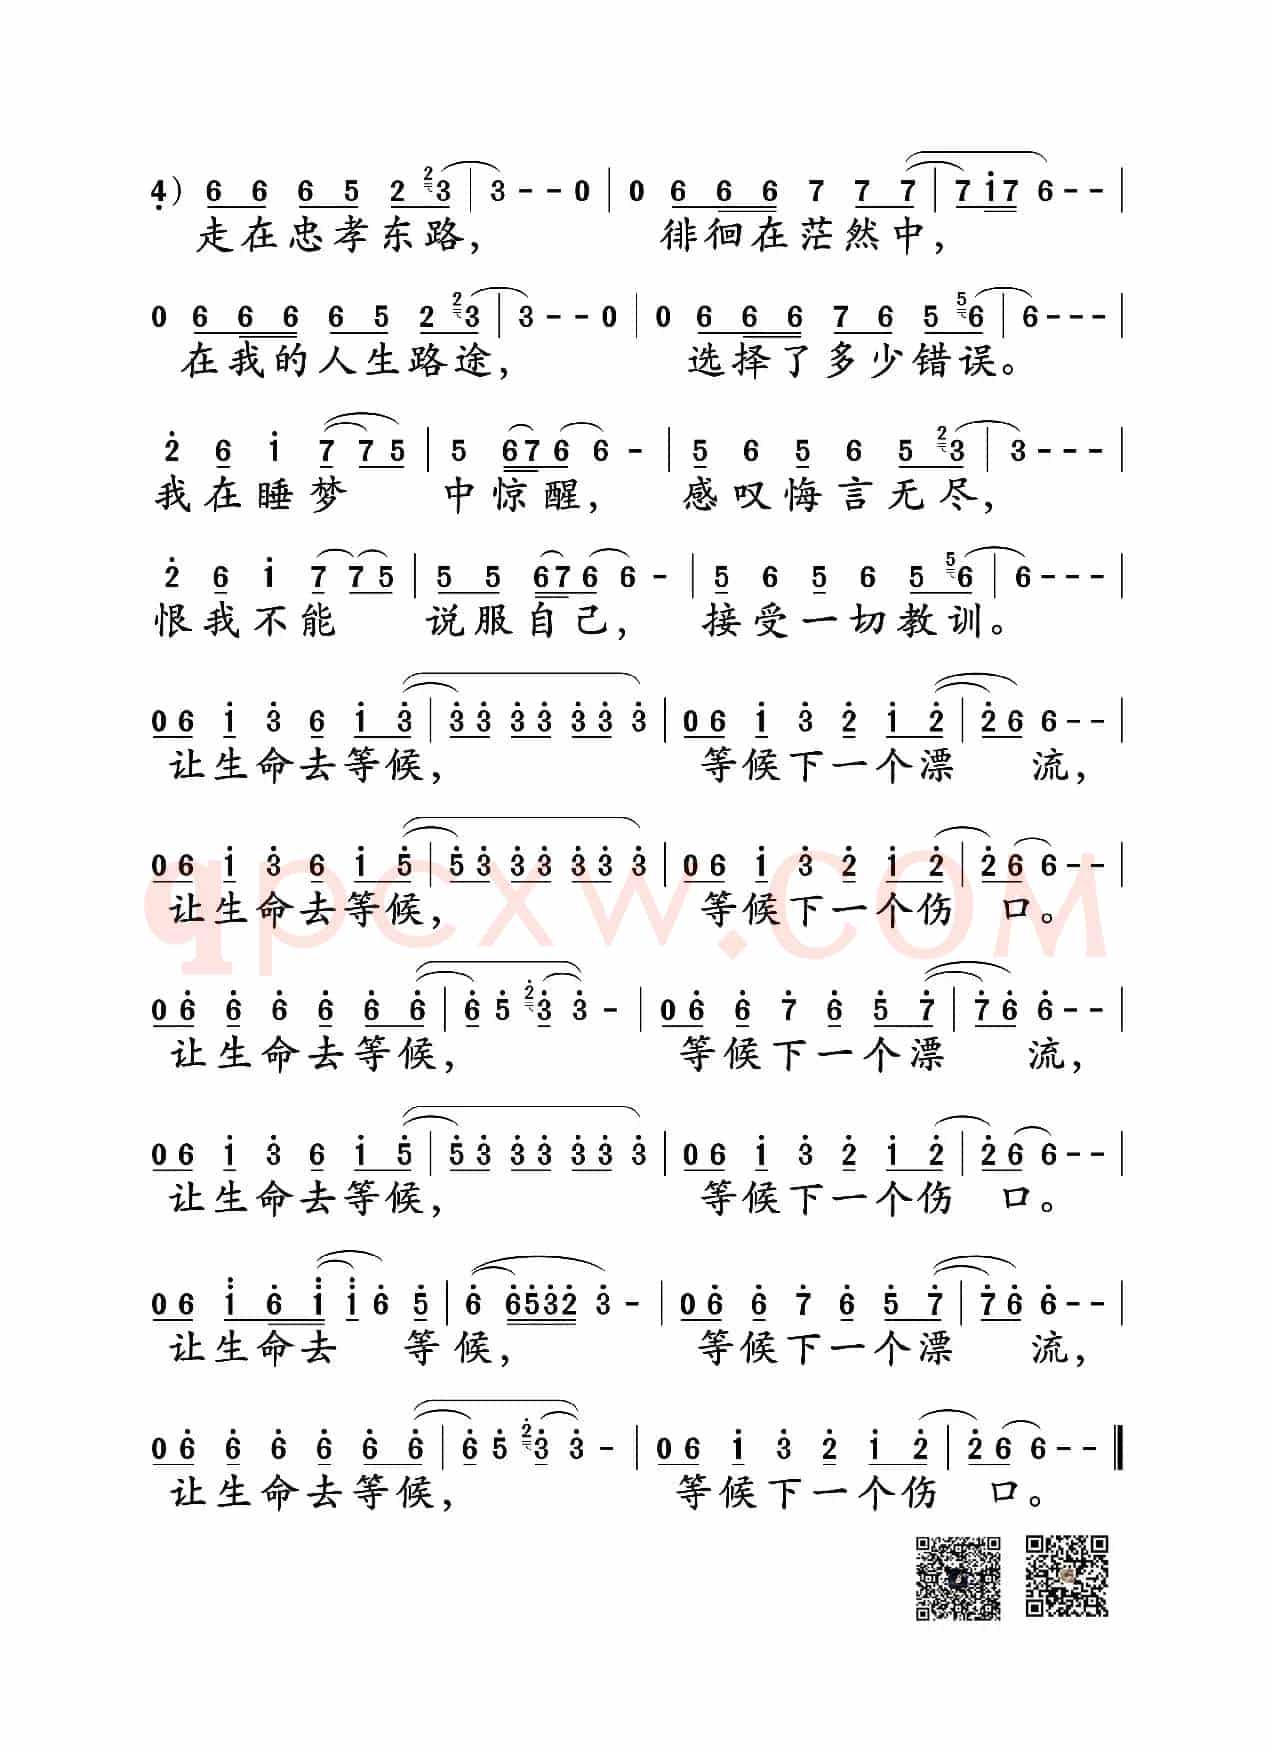 4) 6 6 6 5 2 2 3 | 3 - - 0 | 0 6 6 6 7 7 7 | 7 1 7 6 - - |
走在忠孝东路， 徘徊在茫然中，
0 6 6 6 6 5 2 2 3 | 3 - - 0 | 0 6 6 6 7 6 5 5 6 | 6 - - - |
在我的人生路途， 选择了多少错误。
2 6 1 7 7 5 | 5 6 7 6 6 - | 5 6 5 6 5 2 3 | 3 - - - |
我在睡梦 中惊醒， 感叹悔言无尽，
2 6 1 7 7 5 | 5 5 6 7 6 6 - | 5 6 5 6 5 5 6 | 6 - - - |
恨我不能 说服自己， 接受一切教训。
0 6 1 3 6 1 3 | 3 3 3 3 3 3 3 | 0 6 1 3 2 1 2 | 2 6 6 - - |
让生命去等候， 等候下一个漂 流，
0 6 1 3 6 1 5 | 5 3 3 3 3 3 3 | 0 6 1 3 2 1 2 | 2 6 6 - - |
让生命去等候， 等候下一个伤 口。
qpcxw.COM
0 6 6 6 6 6 6 | 6 5 2 3 3 - | 0 6 6 7 6 5 7 | 7 6 6 - - |
让生命去等候， 等候下一个漂 流，
0 6 1 3 6 1 5 | 5 3 3 3 3 3 3 | 0 6 1 3 2 1 2 | 2 6 6 - - |
让生命去等候， 等候下一个伤 口。
0 6 1 6 1 1 6 5 | 6 6 5 3 2 3 - | 0 6 6 7 6 5 7 | 7 6 6 - - |
让生命去 等候， 等候下一个漂 流，
0 6 6 6 6 6 6 | 6 5 2 3 3 - | 0 6 1 3 2 1 2 | 2 6 6 - - ‖
让生命去等候， 等候下一个伤 口。